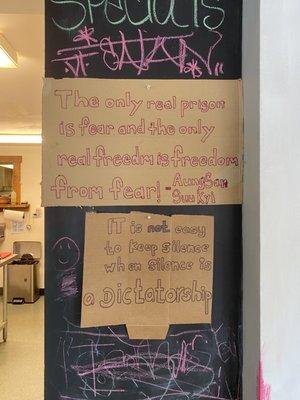 Specials
The only real prison
is fear and the only
real freedm is freedom
from fear! - Aung San
Suu Kyi
IT is not easy
to keep silence
when silence is
a Dictatorship